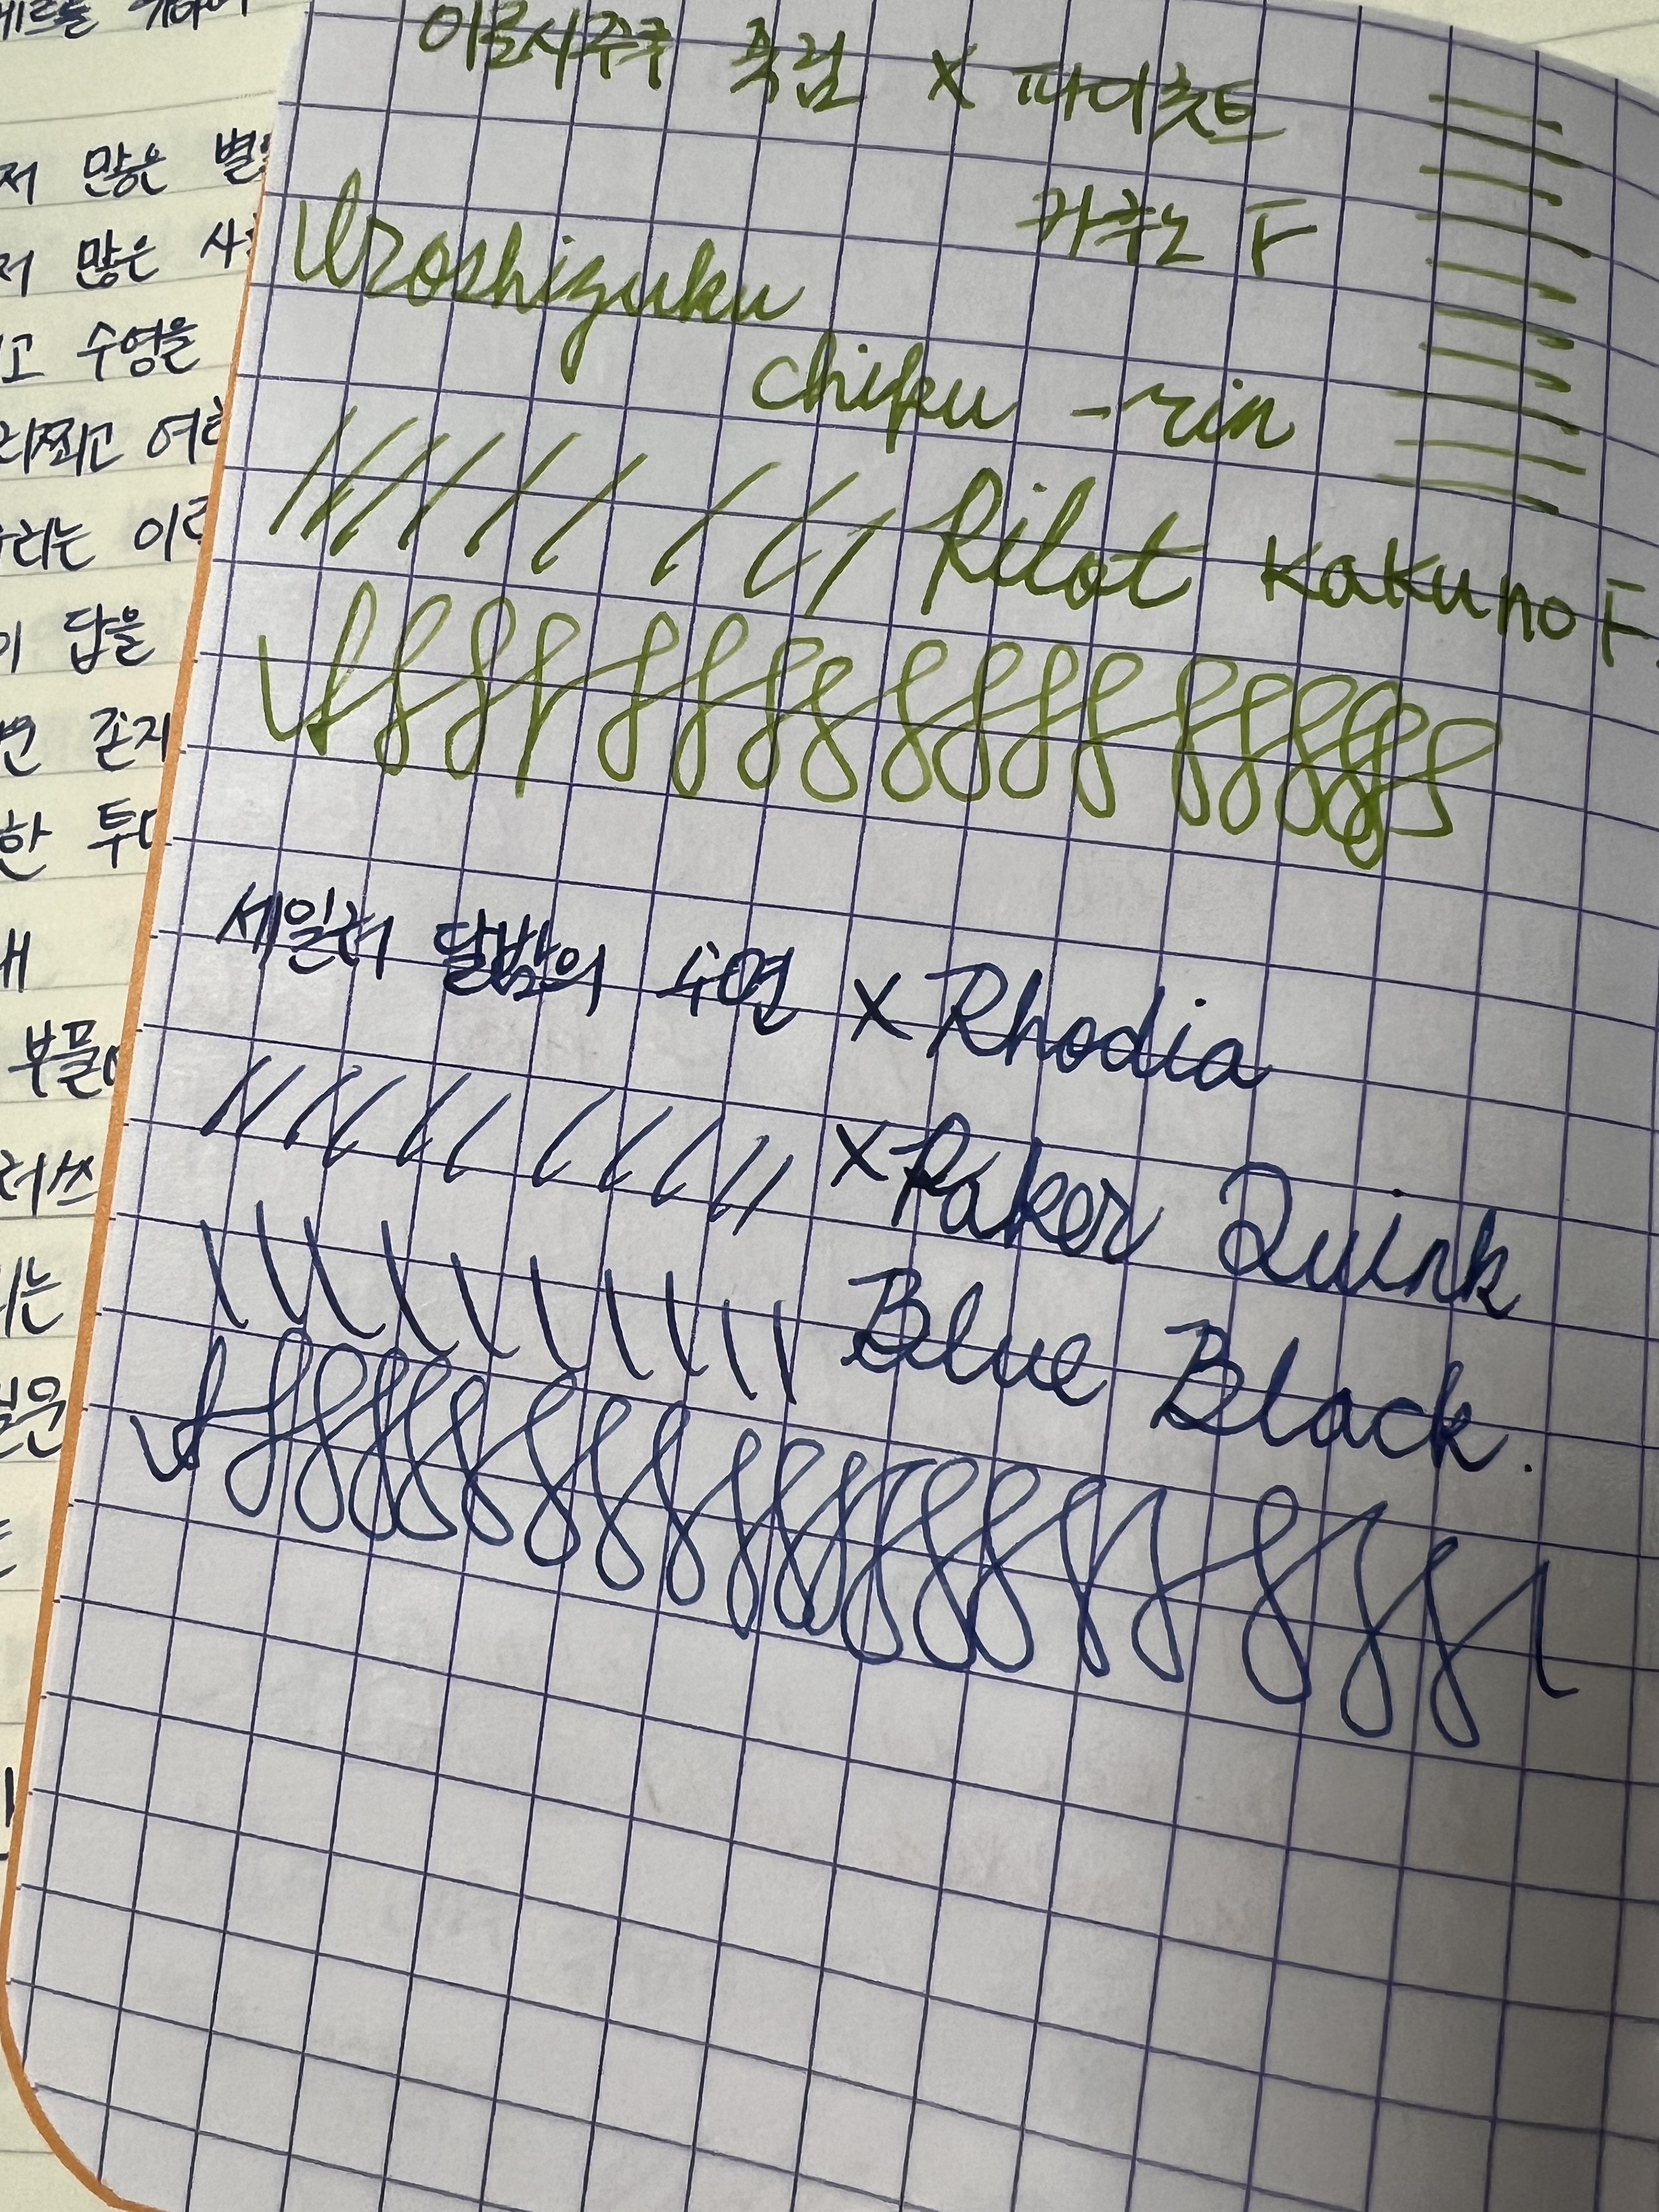 이로시주쿠 죽림 X 파이롯트
카쿠노 F
Iroshizuku
chiku -rin
Pilot Kakuno F.
세일러 달밤의 수면 X Rhodia
X Paker Quink
Blue Black.
저 많은 별
저 많은
고 수영을
리찌고
우리는
답을
변 존재
한
내
러쓰